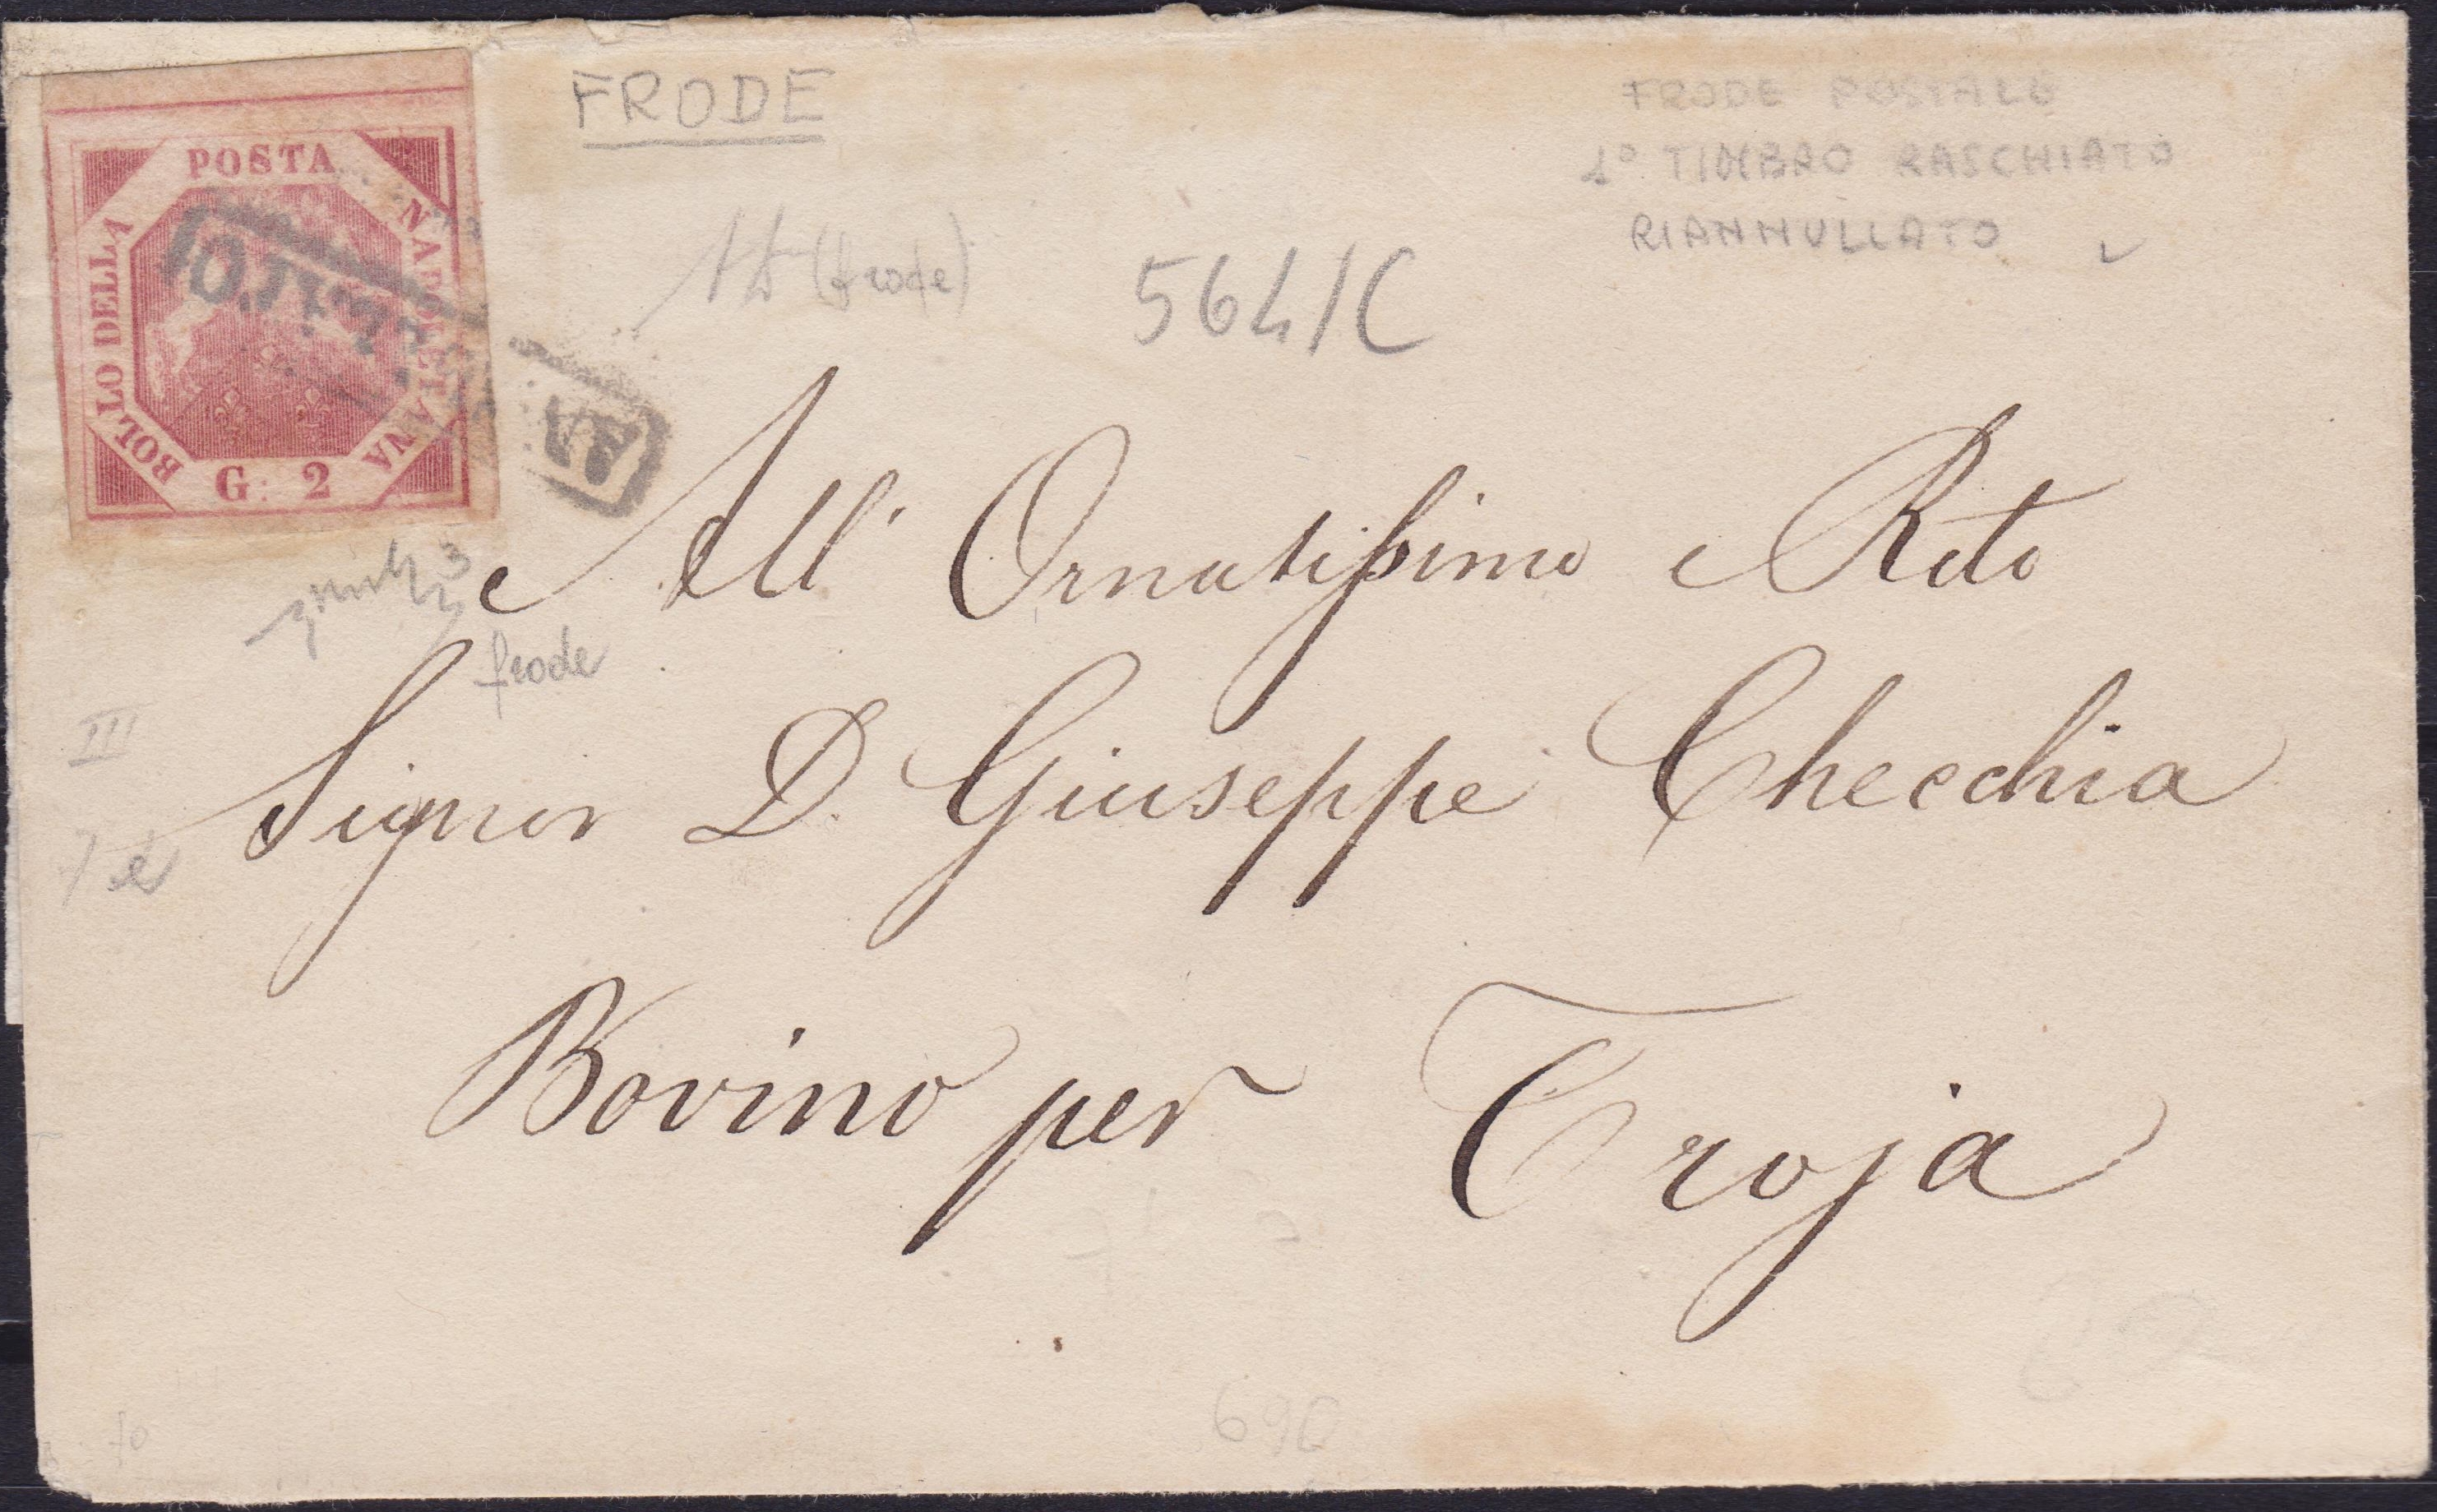 FRODE
FRODE POSTALE
1° TIMBRO RASCHIATO
RIANNULLATO
(frode)
564/C
POSTA
NAPOLETANA
BOLLO DELLA
G. 2
frode
III
All' Ornatissimo e
Signor D. Giuseppe Checchia
Bovino per Troja
690